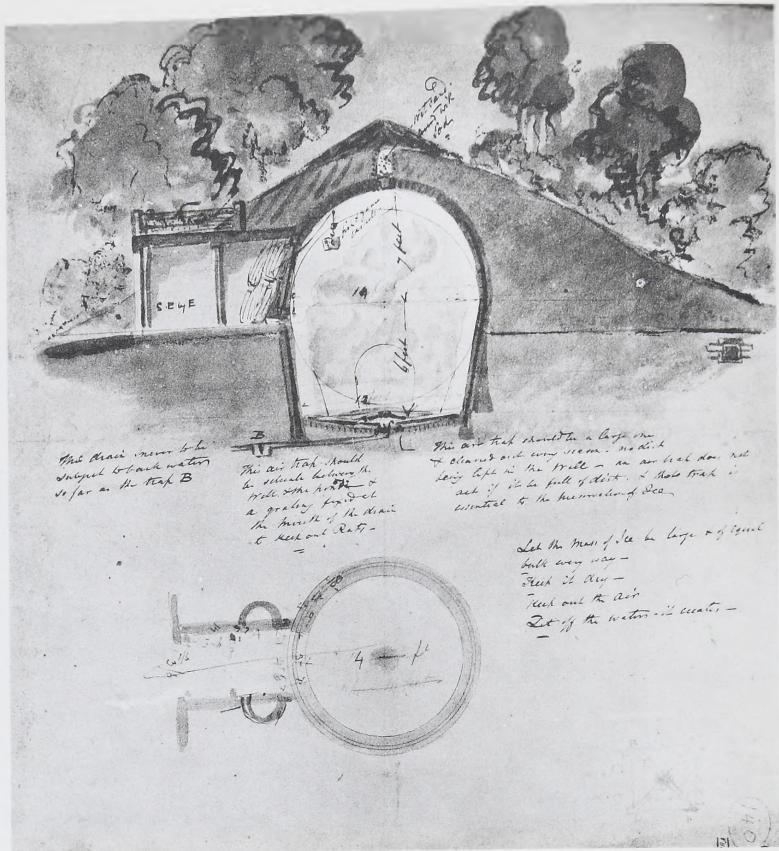 7 feet
14
6 feet
12
S.E by E
B
This drain never to be
subject to back water
so far as the trap B
This air trap should
be situate between the
Well & the pond &
a grating fixed at
the mouth of the drain
to keep out Rats -
This air trap should be a large one
& cleaned out every season. no dirt
being left in the Well - an air trap does not
act if it be full of dirt. & that trap is
essential to the preservation of Ice
Let the Mass of Ice be large & of Equal
bulk every way -
Keep it dry -
Keep out the Air
Let off the water it creates -
4 ft
140